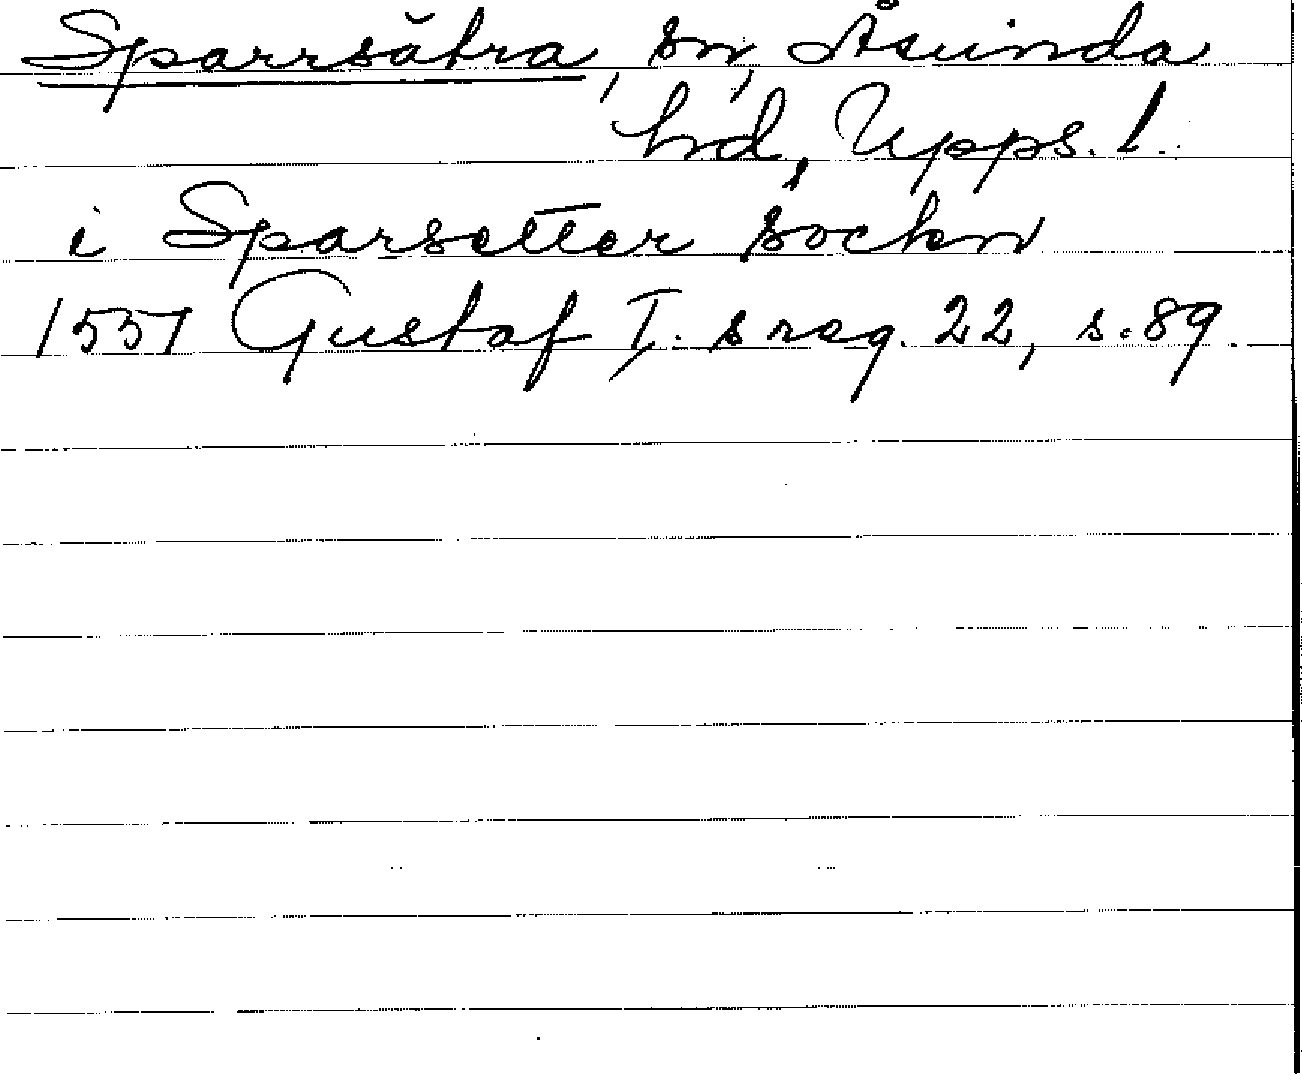 Sparrsätra, sn, Åsunda
hd, Upps. l.
i Sparsetter sockn
1551 Gustaf I. s reg. 22, s. 89